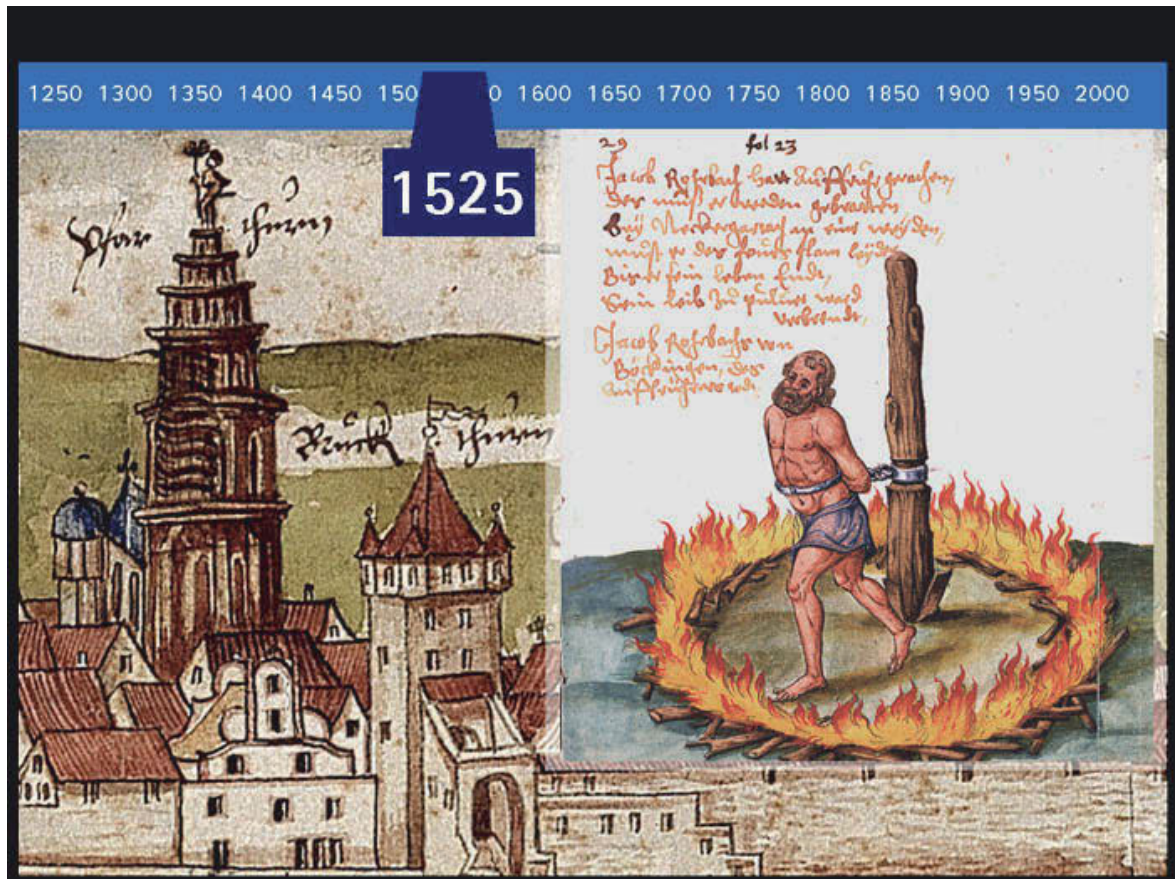 1250 1300 1350 1400 1450 150 0 1600 1650 1700 1750 1800 1850 1900 1950 2000
1525
29 fol 23
Jacob Rohrbach hatt Auffruhr gemachen,
der muß er werden gebratten
Bey Neckergartach an eine weyden,
must er des feurs flam leyden
Bis er sein leben Endt,
Sein leib zu pulver ward
verbrendt,
Jacob Rohrbachs von
Böckingen, des
auffruhrers todt
Pfar thurn
Bruck thurn